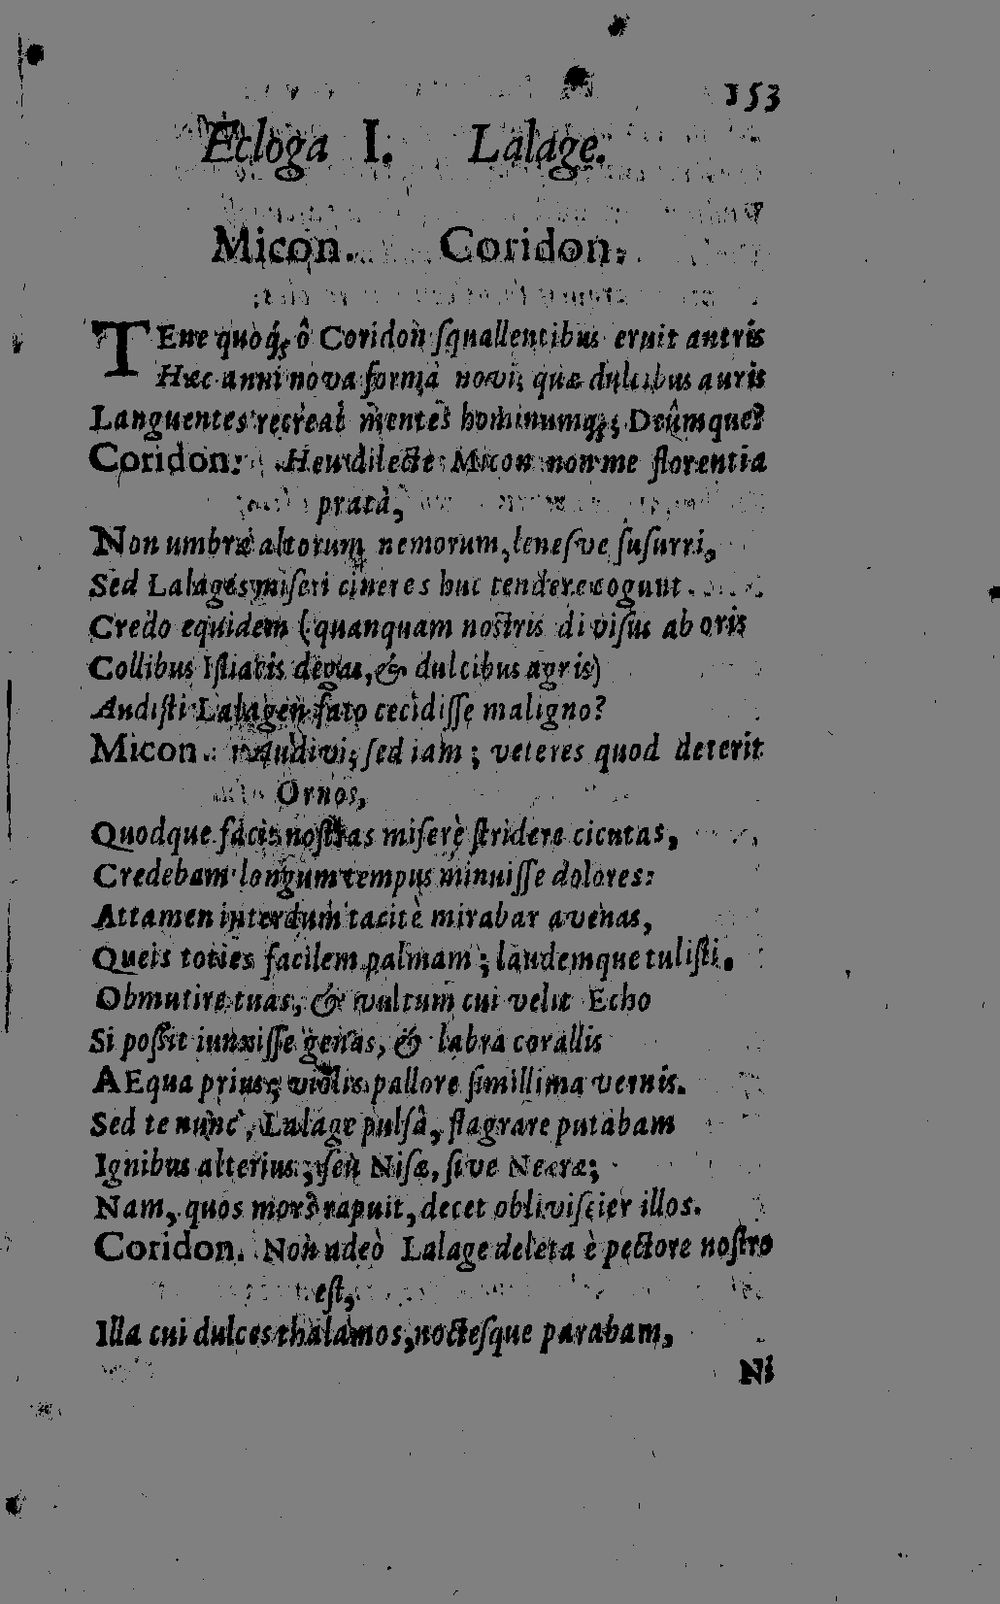 153
Ecloga I. Lalage.
Micon. Coridon.
TEne quoq́; ô Coridon ſquallentibus eruit antris
Hæc anni nova forma novi; quæ dulcibus auris
Languentes recreat mentes hominumq́; Deûmque?
Coridon. Heu dilecte Micon non me florentia
prata,
Non umbræ altorum nemorum, leneſve ſuſurri,
Sed Lalages miſeri cineres huc tendere cogunt.
Credo equidem (quanquam noſtris diviſus ab oris
Collibus Iſliacis devus, & dulcibus agris)
Audiſti Lalagen fato cecidiſſe maligno?
Micon. Audivi; ſed iam; veteres quod deterit
Ornos,
Quodque facit noſtras miſerè ſtridere cicutas,
Credebam longum tempus minuiſſe dolores:
Attamen interdum tacitè mirabar avenas,
Queis toties facilem palmam; laudemque tuliſti.
Obmutire tuas, & vultum cui velit Echo
Si poſſit iunxiſſe genas, & labra corallis
AEqua prius; violis pallore ſimillima vernis.
Sed te nunc, Lalage pulſâ, flagrare putabam
Ignibus alterius; ſeu Niſæ, ſive Neæræ;
Nam, quos mors rapuit, decet obliviſcier illos.
Coridon. Non adeò Lalage deleta è pectore noſtro
eſt,
Illa cui dulces thalamos, nocteſque parabam,
Ni